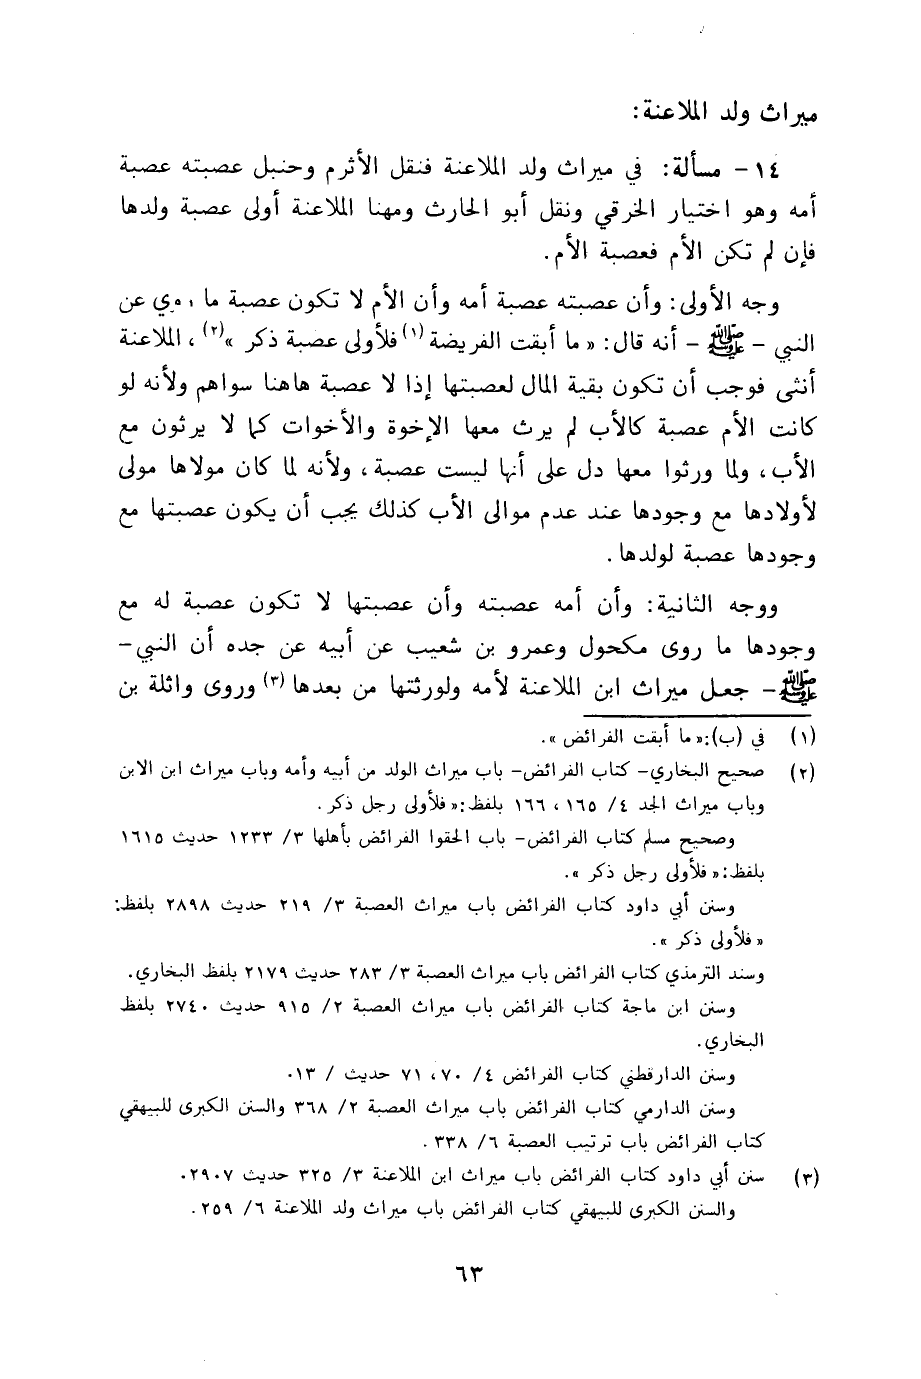 ميراث ولد الملاعنة:
١٤ - مسألة: في ميراث ولد الملاعنة فنقل الأثرم وحنبل عصبته عصبة
أمه وهو اختيار الخرقي ونقل أبو الحارث ومهنا الملاعنة أولى عصبة ولدها
فإن لم تكن الأم فعصبة الأم.
وجه الأولى: وأن عصبته عصبة أمه وأن الأم لا تكون عصبة ما روي عن
النبي - ﷺ - أنه قال: « ما أبقت الفريضة (١) فلأولى عصبة ذكر »(٢)، الملاعنة
أنثى فوجب أن تكون بقية المال لعصبتها إذا لا عصبة هاهنا سواهم ولأنه لو
كانت الأم عصبة كالأب لم يرث معها الإخوة والأخوات كما لا يرثون مع
الأب، ولما ورثوا معها دل على أنها ليست عصبة، ولأنه لما كان مولاها مولى
لأولادها مع وجودها عند عدم موالى الأب كذلك يجب أن يكون عصبتها مع
وجودها عصبة لولدها.
ووجه الثانية: وأن أمه عصبته وأن عصبتها لا تكون عصبة له مع
وجودها ما روى مكحول وعمرو بن شعيب عن أبيه عن جده أن النبي -
ﷺ - جعل ميراث ابن الملاعنة لأمه ولورثتها من بعدها (٣) وروى واثلة بن
(١) في (ب):« ما أبقت الفرائض ».
(٢) صحيح البخاري - كتاب الفرائض - باب ميراث الولد من أبيه وأمه وباب ميراث ابن الابن
وباب ميراث الجد ٤/ ١٦٥، ١٦٦ بلفظ:« فلأولى رجل ذكر .
وصحيح مسلم كتاب الفرائض - باب الحقوا الفرائض بأهلها ٣/ ١٢٣٣ حديث ١٦١٥
بلفظ:« فلأولى رجل ذكر ».
وسنن أبي داود كتاب الفرائض باب ميراث العصبة ٣/ ٢١٩ حديث ٢٨٩٨ بلفظ:
« فلأولى ذكر ».
وسند الترمذي كتاب الفرائض باب ميراث العصبة ٣/ ٢٨٣ حديث ٢١٧٩ بلفظ البخاري.
وسنن ابن ماجة كتاب الفرائض باب ميراث العصبة ٢/ ٩١٥ حديث ٢٧٤٠ بلفظ
البخاري.
وسنن الدارقطني كتاب الفرائض ٤/ ٧٠، ٧١ حديث / ١٣.
وسنن الدارمي كتاب الفرائض باب ميراث العصبة ٢/ ٣٦٨ والسنن الكبرى للبيهقي
كتاب الفرائض باب ترتيب العصبة ٦/ ٣٣٨ .
(٣) سنن أبي داود كتاب الفرائض باب ميراث ابن الملاعنة ٣/ ٣٢٥ حديث ٢٩٠٧.
والسنن الكبرى للبيهقي كتاب الفرائض باب ميراث ولد الملاعنة ٦/ ٢٥٩ .
٦٣